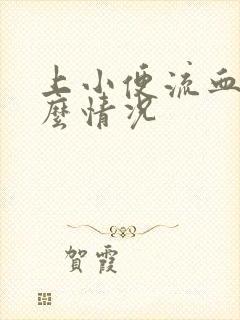 上小便流血
麼情況
賀霞